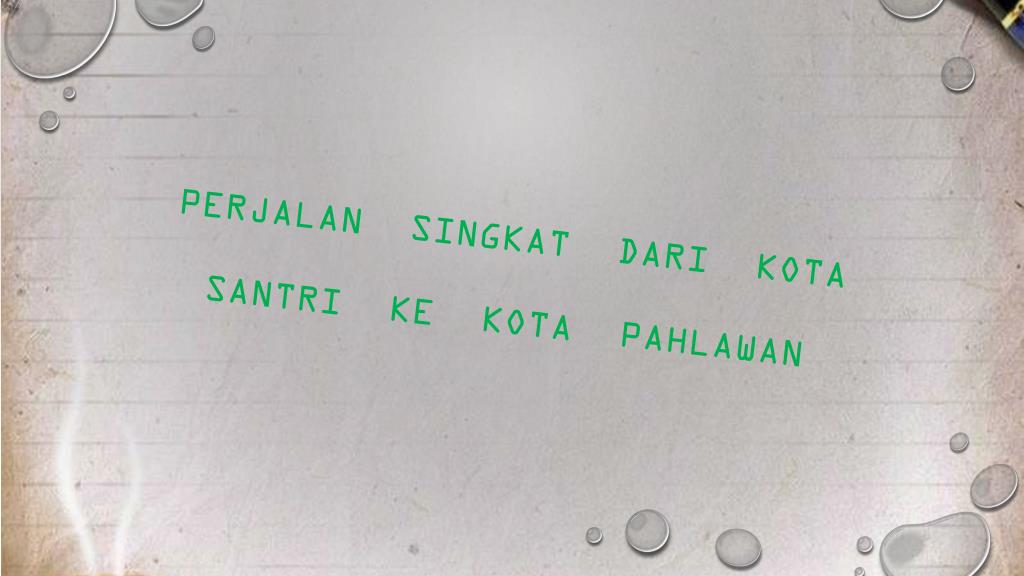 PERJALAN SINGKAT DARI KOTA
SANTRI KE KOTA PAHLAWAN